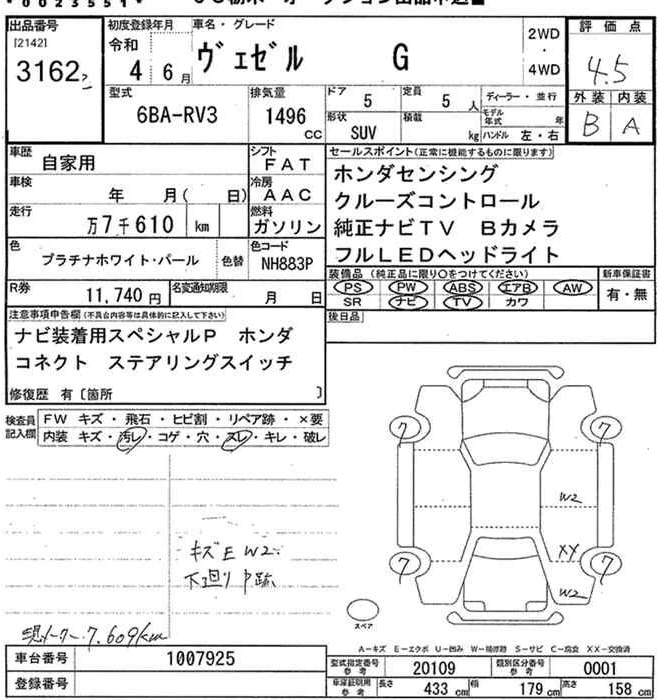 *0023551*
出品番号
[2142]
3162
初度登録年月
令和
4 6月
車名・グレード
ヴェゼル G
2WD
・
4WD
評価点
4.5
外装 内装
B A
型式
6BA-RV3
排気量
1496
CC
ドア
5
定員
5 人
形状
SUV
積載
kg
ディーラー・並行
モデル年式 年
ハンドル 左・右
車歴
自家用
シフト
FAT
車検
年 月( 日)
冷房
AAC
走行
万7千610 km
燃料
ガソリン
色
プラチナホワイト・パール
色替
色コード
NH883P
R券
11,740 円
名変通知期限
月 日
セールスポイント(正常に機能するものに限ります)
ホンダセンシング
クルーズコントロール
純正ナビTV Bカメラ
フルLEDヘッドライト
装備品 (純正品に限り○をつけてください)
PS PW ABS エアB AW
SR ナビ TV カワ
新車保証書
有・無
後日品
注意事項申告欄(不具合内容等は具体的に記入して下さい)
ナビ装着用スペシャルP ホンダ
コネクト ステアリングスイッチ
修復歴 有〔箇所 〕
検査員
記入欄
FW キズ・飛石・ヒビ割・リペア跡・×要
内装 キズ・汚レ・コゲ・穴・スレ・キレ・破レ
キズE W2
下廻りP跡
現メーター7,609km
7
7
W2
XX
7
7
W2
スペア
A-キズ E-エクボ U-凹み W-補修跡 S-サビ C-腐食 XX-交換済
車台番号
1007925
登録番号
型式指定番号
参考
20109
類別区分番号
参考
0001
車庫証明用
参考
長さ 433 cm
幅 179 cm
高さ 158 cm